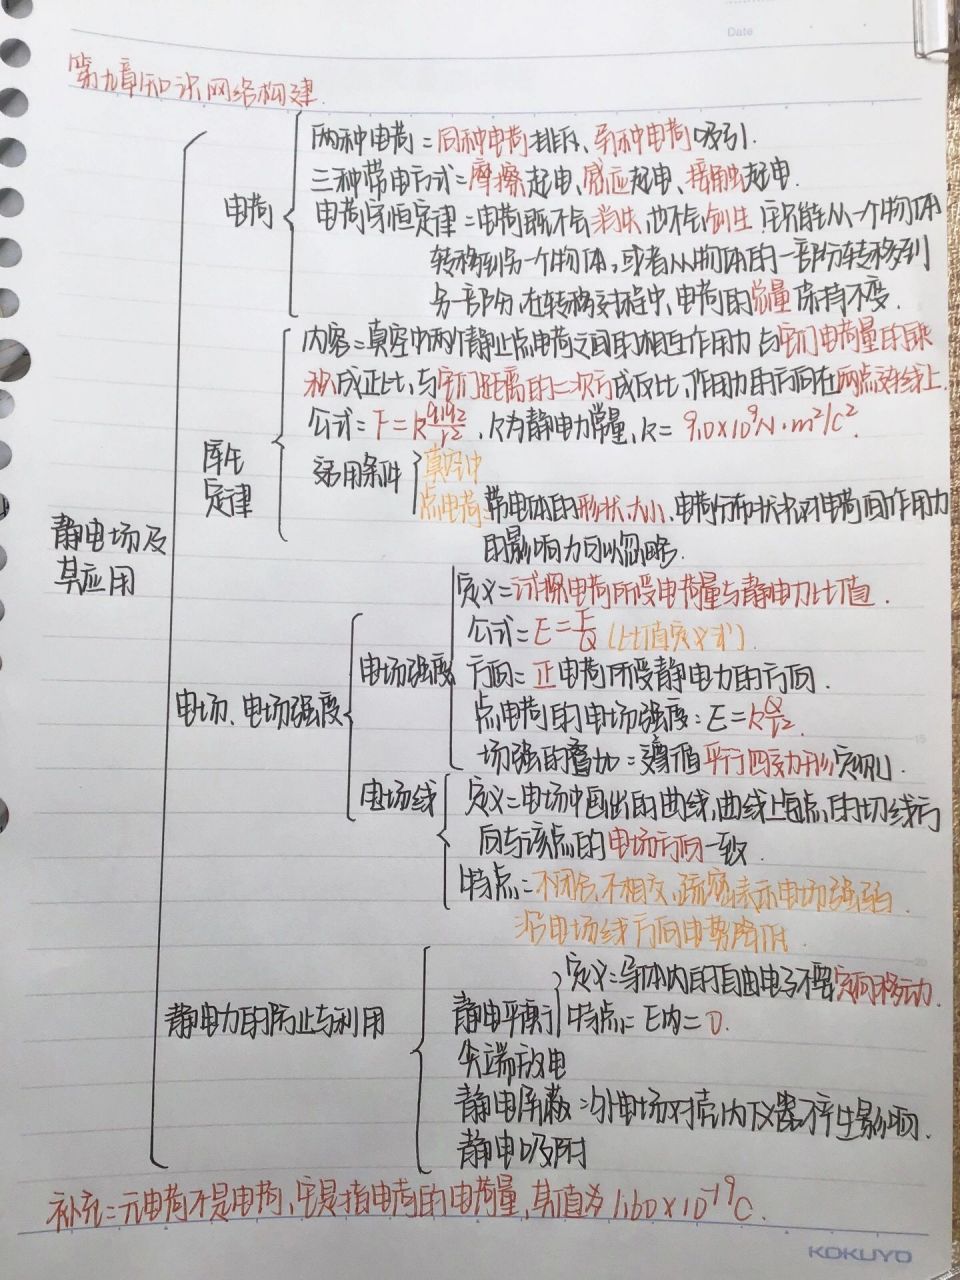 Date
第九章知识网络构建.
两种电荷=同种电荷排斥、异种电荷吸引.
三种带电方式=摩擦起电、感应起电、接触起电.
电荷
电荷守恒定律=电荷既不会消失,也不会创生,它只能从一个物体
转移到另一个物体,或者从物体的一部分转移到
另一部分,在转移过程中,电荷的总量保持不变.
内容=真空中两个静止点电荷之间的相互作用力与它们电荷量的乘
积成正比,与它们距离的二次方成反比,作用力的方向在两点连线上.
公式=F=k q1q2/r2,k为静电力常量,k=9.0×10^9N·m^2/C^2.
库仑
定律
适用条件
真空中
点电荷 带电体的形状、大小、电荷分布状况对电荷间作用力
的影响力可以忽略.
静电场及
其应用
定义=试探电荷所受电荷量与静电力比值.
公式=E=F/Q(比值定义式)
电场强度
方向=正电荷所受静电力的方向.
电场、电场强度
点电荷的电场强度:E=kQ/r2.
场强的叠加=遵循平行四边形定则.
电场线
定义=电场中画出的曲线,曲线上每点的切线方
向与该点的电场方向一致.
特点=不闭合,不相交,疏密表示电场强弱.
沿电场线方向电势降低.
定义=导体内的自由电子不再定向移动.
静电力的防止与利用
静电平衡
特点=E内=0.
尖端放电
静电屏蔽=外电场对壳内仪器不产生影响.
静电吸附
补充=元电荷不是电荷,它是指电荷的电荷量,其值为1.60×10^-19C.
KOKUYO